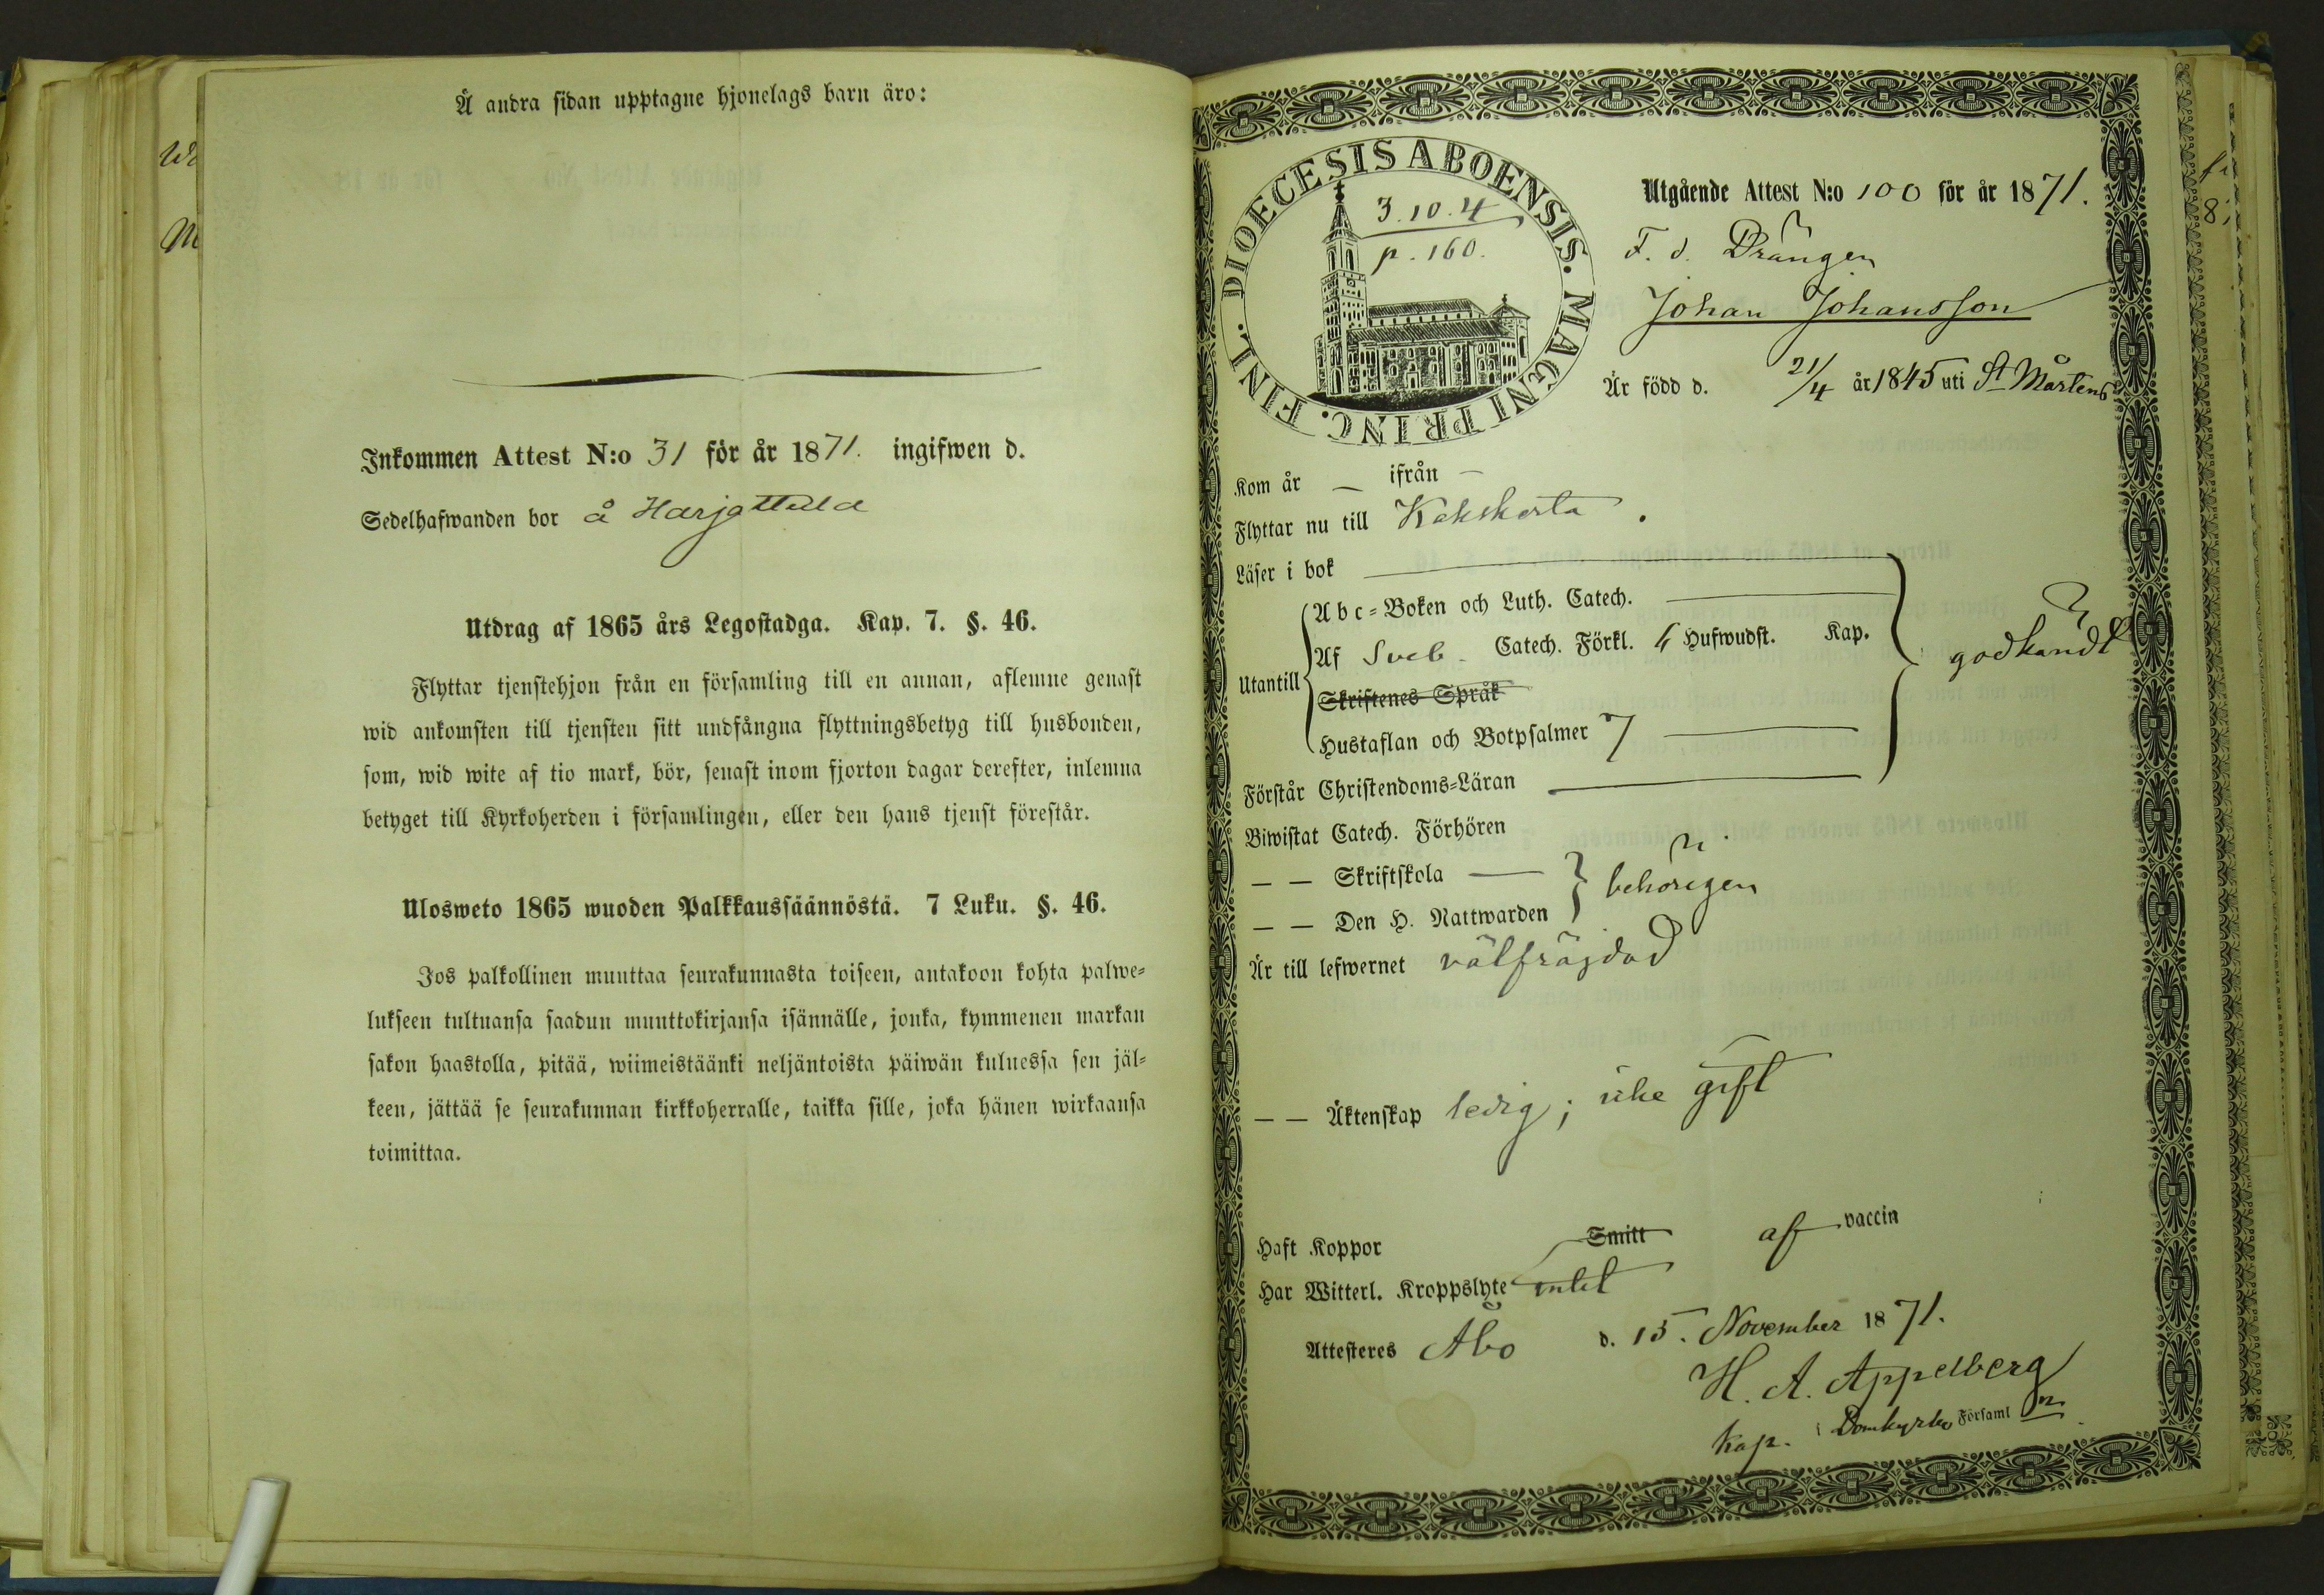 Å andra sidan upptagne hjonelags barn äro:
Inkommen Attest N:o 31 för år 1871. ingifwen d.
Sedelhafwanden bor å Harjattula
Utdrag af 1865 års Legostadga. Kap. 7. §. 46.
Flyttar tjenstehjon från en församling till en annan, aflemne genast
wid ankomsten till tjensten sitt undfångna flyttningsbetyg till husbonden,
som, wid wite af tio mark, bör, senast inom fjorton dagar derefter, inlemna
betyget till Kyrkoherden i församlingen, eller den hans tjenst förestår.
Ulosweto 1865 wuoden Palkkaussäännöstä. 7 Luku. §. 46.
Jos palkollinen muuttaa seurakunnasta toiseen, antakoon kohta palwe-
lukseen tultuansa saadun muuttokirjansa isännälle, jonka, kymmenen markan
sakon haastolla, pitää, wiimeistäänki neljäntoista päiwän kuluessa sen jäl-
keen, jättää se seurakunnan kirkkoherralle, taikka sille, joka hänen wirkaansa
toimittaa.
DIOECESIS ABOENSIS. MAGNI PRINC. FINL.
3.10.4
p. 160.
Utgående Attest N:o 100 för år 1871.
F. d. Drängen
Johan Johansson
Är född d. 21/4 år 1845 uti St Mårtens
Kom år — ifrån —
Flyttar nu till Kakskerta.
Läser i bok
Utantill
Abc-Boken och Luth. Catech.
Af Sveb. Catech. Förkl. 6 Hufwudst. Kap.
Skriftenes Språk
Hustaflan och Botpsalmer 7
godkändt
Förstår Christendoms-Läran
Biwistat Catech. Förhören
— — Skriftskola —
— — Den H. Nattwarden
behörigen
Är till lefwernet välfräjdad
— — Äktenskap ledig; icke gift
Haft Koppor Smitt af vaccin
Har Witterl. Kroppslyte intet
Attesteres Åbo d. 15. November 1871.
H. A. Appelberg
Kap. i Domkyrko Församl n